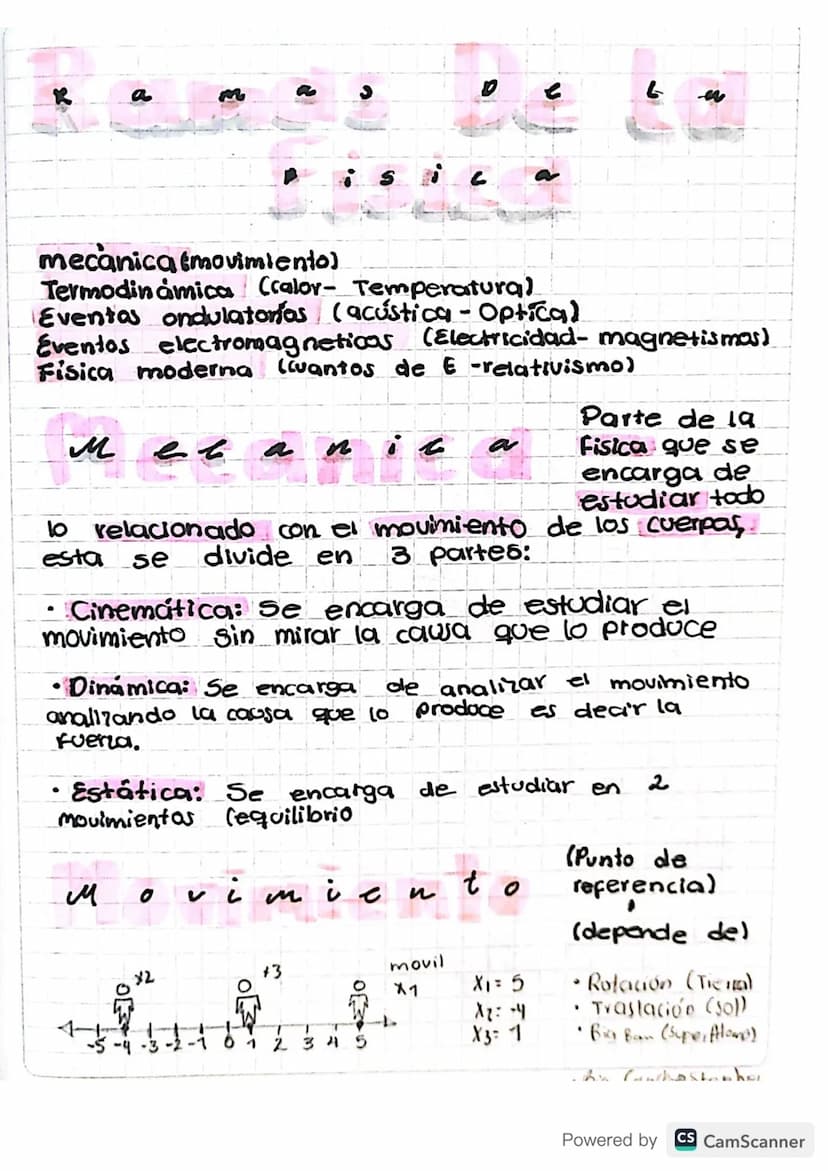 Ramas De La
Fisica
mecànica (movimiento)
Termodinámica (calor- Temperatura)
Eventos ondulatorios (acústica - Optica)
Eventos electromagneticos (Electricidad- magnetismos)
Física moderna (cuantos de E -relativismo)
Mecanica
Parte de la
Fisica que se
encarga de
estudiar todo
lo relacionado con el movimiento de los cuerpos,
esta se divide en 3 partes:
· Cinemática: Se encarga de estudiar el
movimiento sin mirar la causa que lo produce
· Dinámica: Se encarga de analizar el movimiento
analizando la causa que lo produce es decir la
fuerza.
· Estática: Se encarga de estudiar en 2
movimientos (equilibrio
Movimiento
(Punto de
referencia)
(depende de)
x2
+3
movil
x1
-5 -4 -3 -2 -1 0 1 2 3 4 5
X1= 5
X2: -4
X3= 1
· Rotación (Tierra)
· Traslación (sol)
· Big Ban
Powered by CS CamScanner